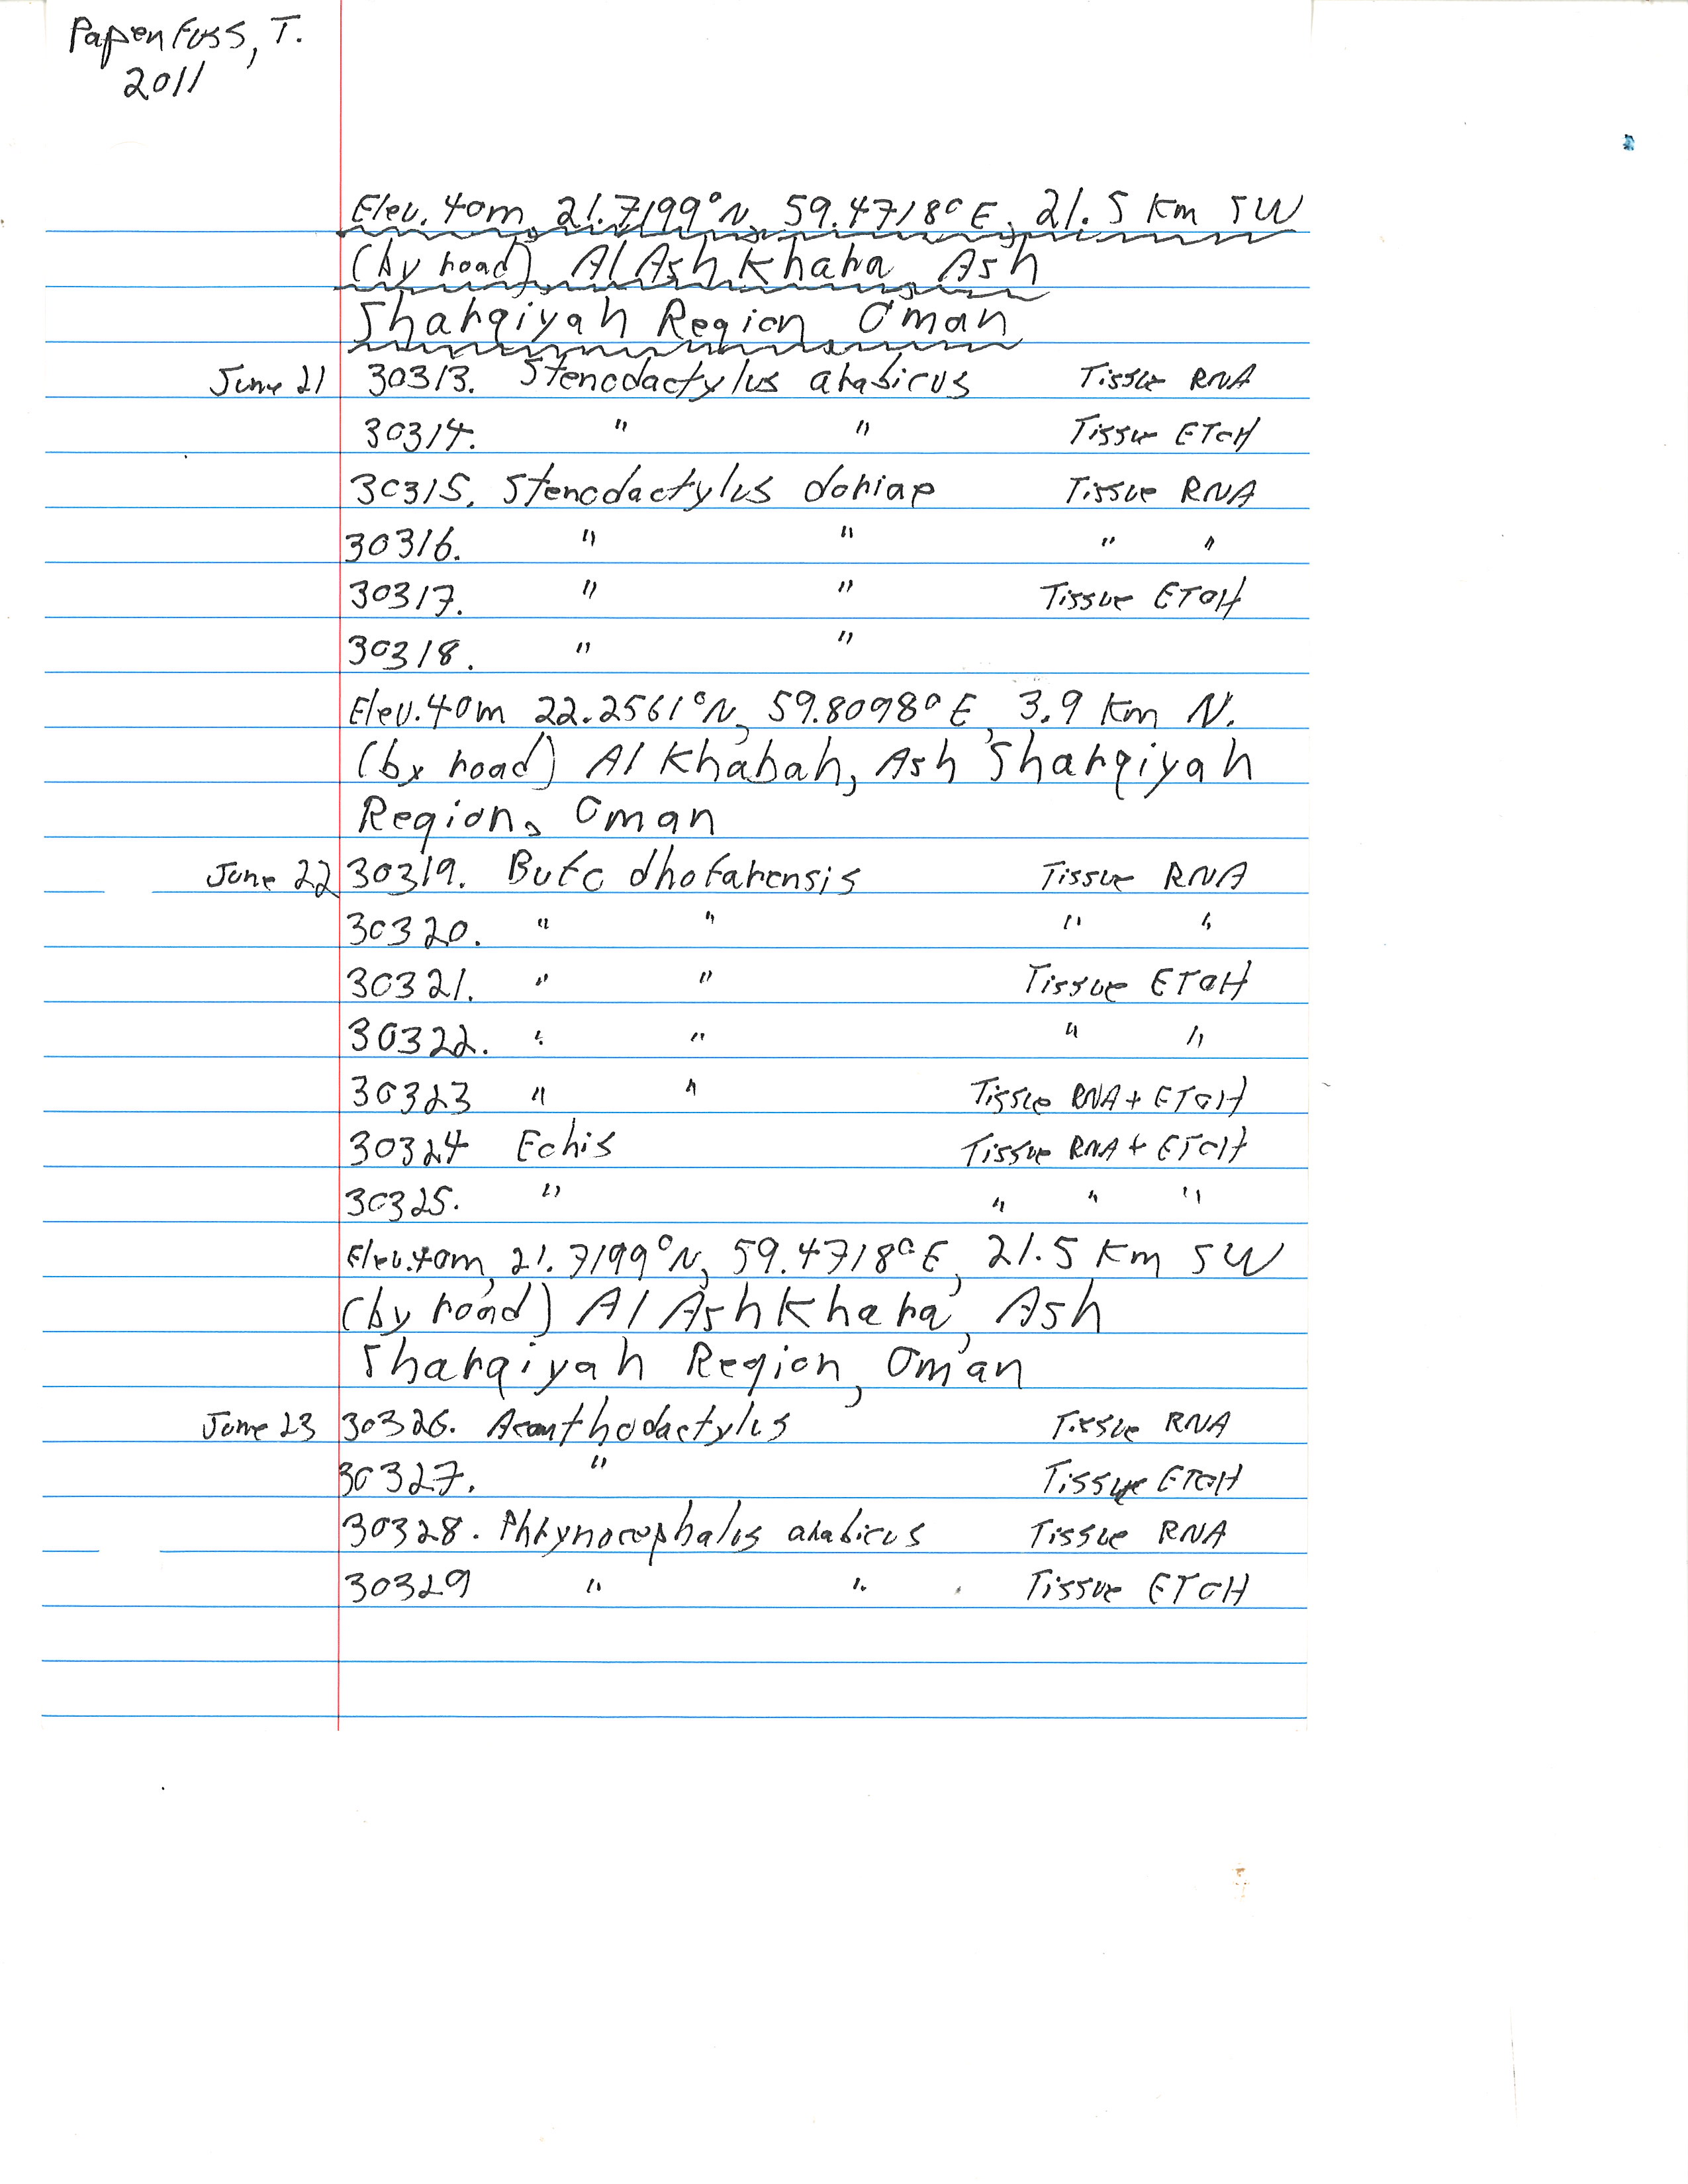 Papenfuss, T.
2011
Elev. 40m, 21.7199°N, 59.4718°E, 21.5 Km SW
(by road), Al Ash Khara, Ash
Sharqiyah Region, Oman
June 21 30313. Stenodactylus arabicus Tissue RNA
30314. " " Tissue ETOH
30315. Stenodactylus doriae Tissue RNA
30316. " " " "
30317. " " Tissue ETOH
30318. " "
Elev. 40m 22.2561°N, 59.8098°E, 3.9 Km N.
(by road) Al Khabah, Ash Sharqiyah
Region, Oman
June 22 30319. Bufo dhofarensis Tissue RNA
30320. " " " "
30321. " " Tissue ETOH
30322. " " " "
30323 " " Tissue RNA + ETOH
30324 Echis Tissue RNA + ETOH
30325. " " " "
Elev. 40m, 21.7199°N, 59.4718°E, 21.5 Km SW
(by road) Al Ash Khara, Ash
Sharqiyah Region, Oman
June 23 30326. Acanthodactylus Tissue RNA
30327. " Tissue ETOH
30328. Phrynocephalus arabicus Tissue RNA
30329 " " Tissue ETOH